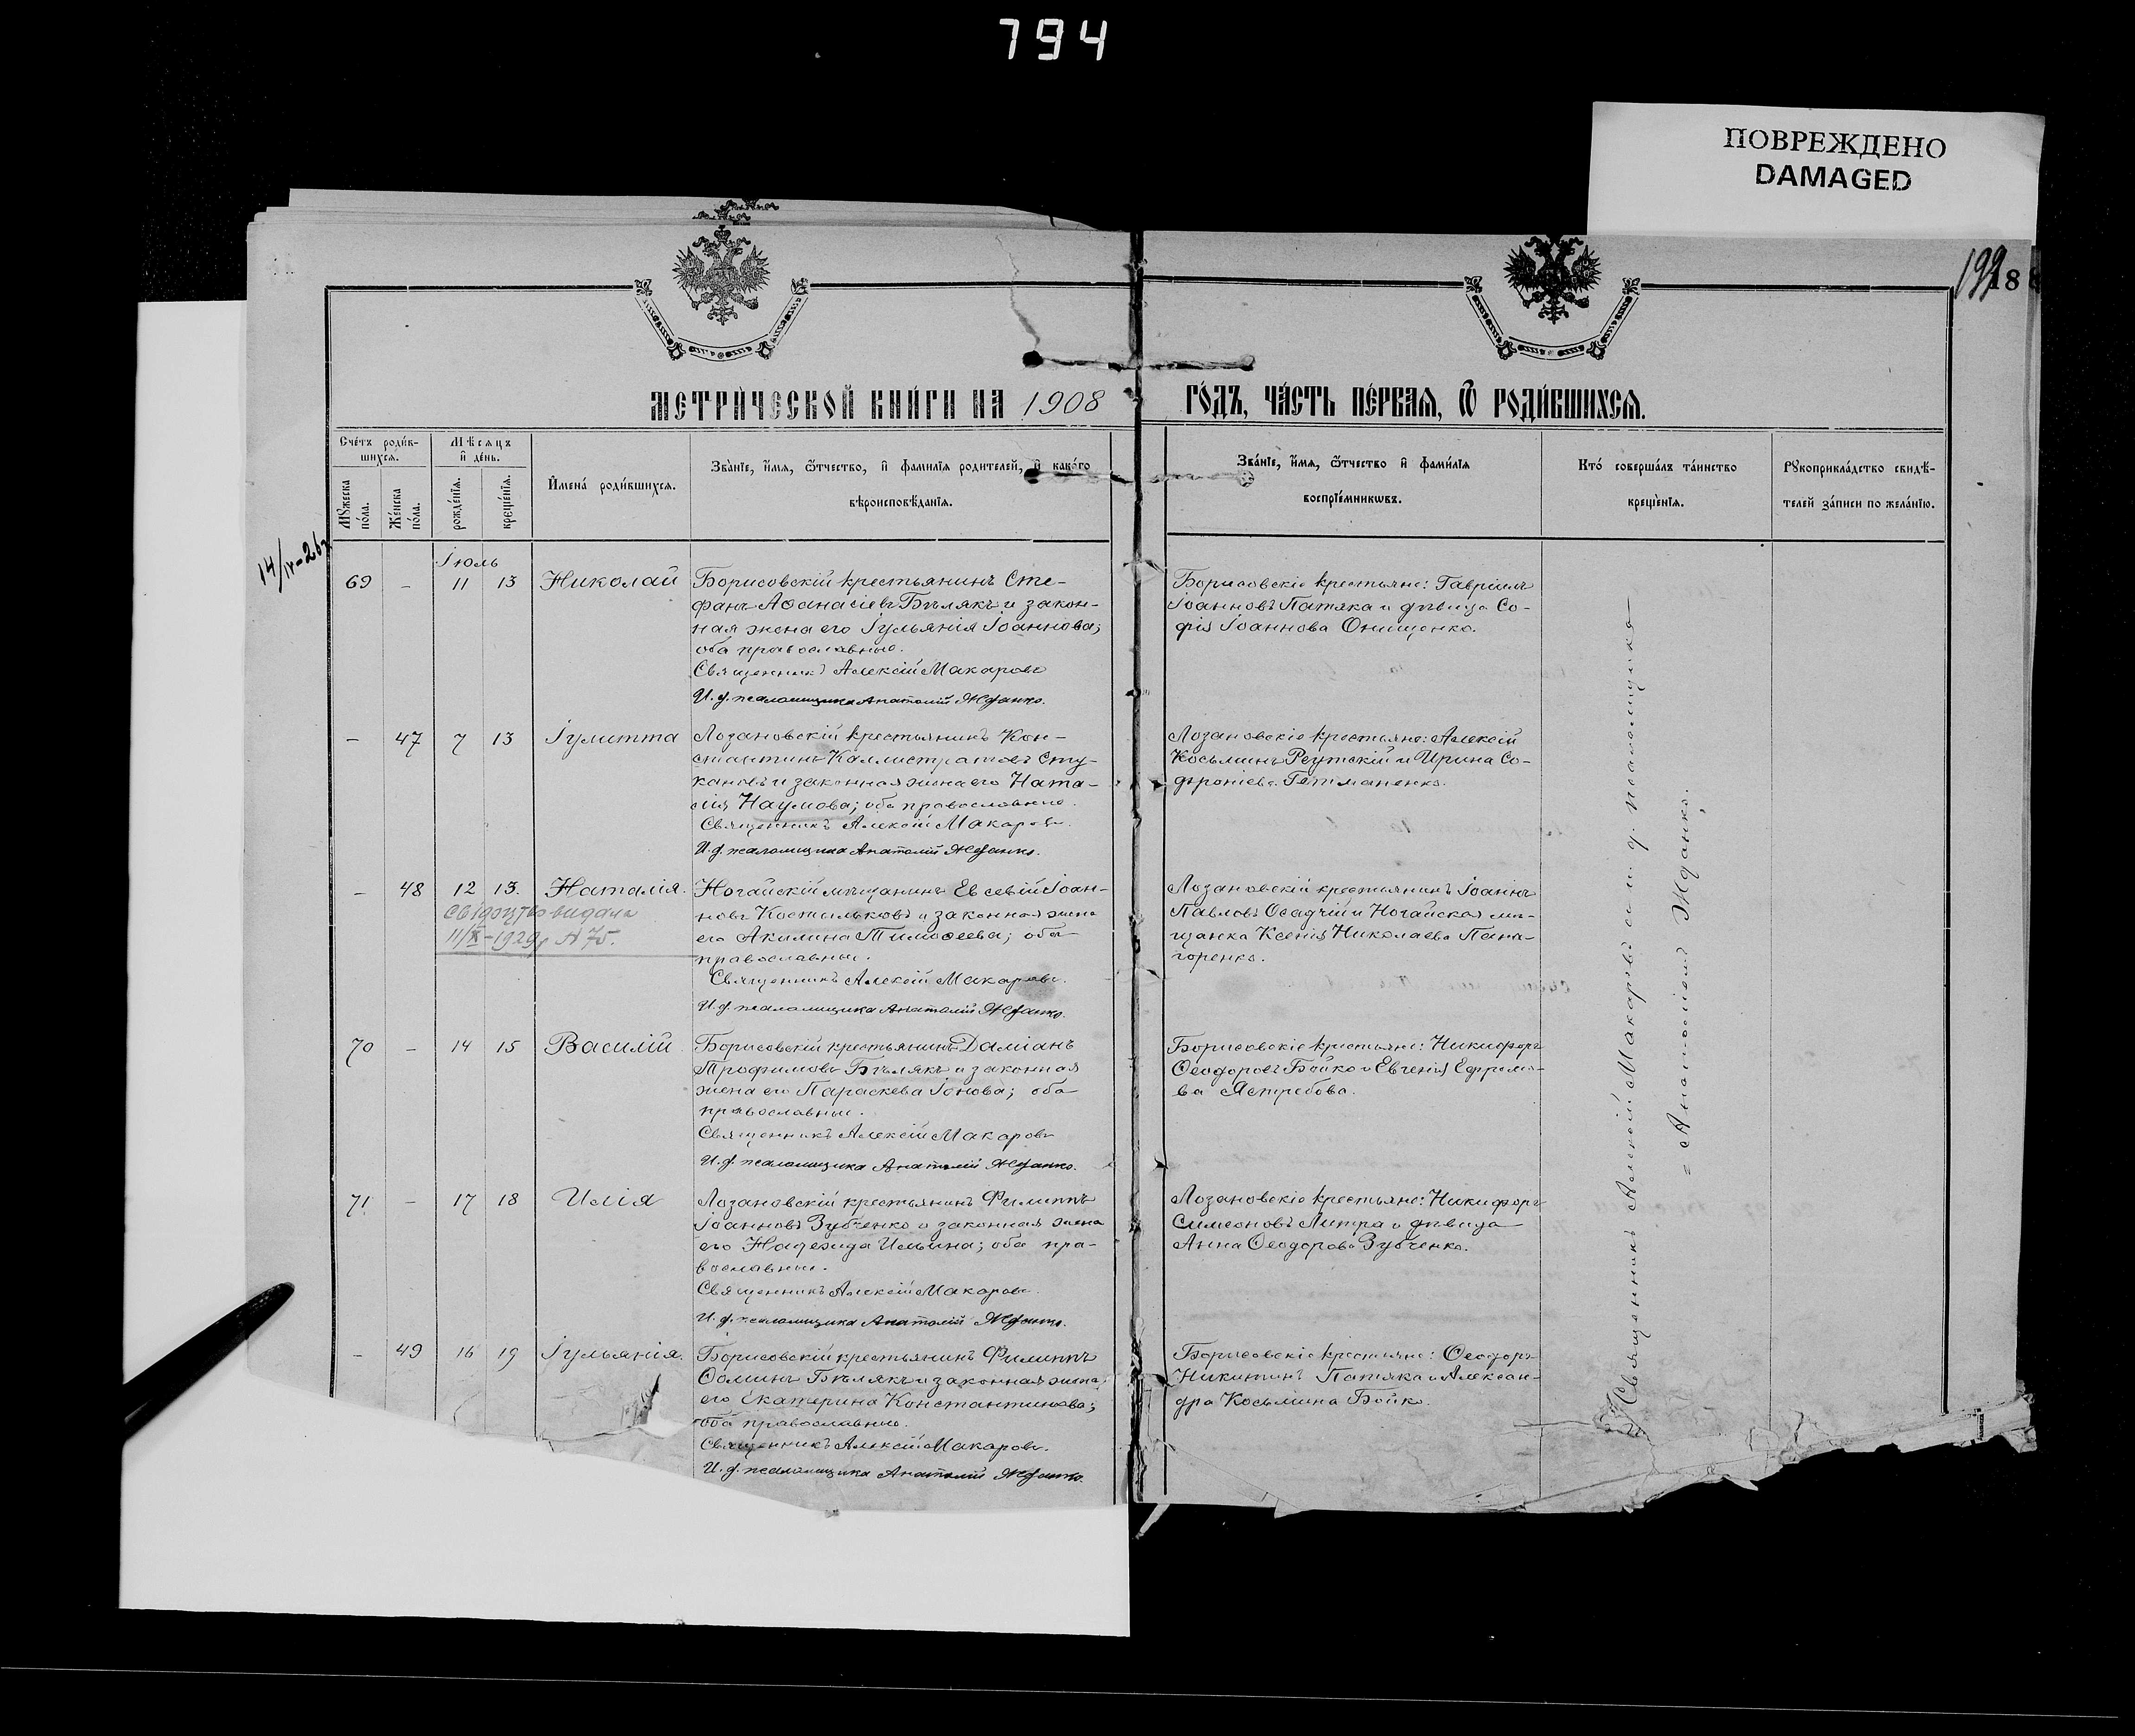 794
ПОВРЕЖДЕНО
DAMAGED
199
18
МЕТРИЧЕСКОЙ КНИГИ НА 1908 ГОДЪ, ЧАСТЬ ПЕРВАЯ, Ѿ РОДИВШИХСЯ.
Счетъ родив-
шихся.
Мѣсяцъ
и день.
Мужеска
пола.
Женска
пола.
рожденія.
крещенія.
Имена родившихся.
Званіе, имя, ѿтчество, и фамилія родителей, и какого
вѣроисповѣданія.
Званіе, имя, ѿтчество и фамилія
воспріемниковъ.
Кто совершалъ таинство
крещенія.
Рукоприкладство свидѣ-
телей записи по желанію.
14/IV-26
Іюль
69 - 11 13 Николай
Борисовскій крестьянинъ Сте-
фанъ Аѳанасіевъ Бѣлякъ и закон-
ная жена его Іульянія Іоаннова;
оба православные.
Священникъ Алексій Макаровъ
И. д. псаломщика Анатолій Жданко.
Борисовскіе крестьяне: Гавріилъ
Іоанновъ Патяка и дѣвица Со-
фія Іоаннова Онищенко.
- 47 7 13 Іулитта
Лозановскій крестьянинъ Кон-
стантинъ Каллистратовъ Сту-
кановъ и законная жена его Ната-
лія Наумова; оба православные.
Священникъ Алексій Макаровъ.
И. д. псаломщика Анатолій Жданко.
Лозановскіе крестьяне: Алексій
Косьминъ Реутскій и Ирина Со-
фроніева Гетманенко.
- 48 12 13. Наталія.
Свідоцтво видано
11/X-1929 р № 75.
Ногайскій мѣщанинъ Евсевій Іоан-
новъ Костыльковъ и законная жена
его Акилина Тимоѳеева; оба
православные.
Священникъ Алексій Макаровъ.
И. д. псаломщика Анатолій Жданко.
Лозановскій крестьянинъ Іоаннъ
Павловъ Осадчій и Ногайская мѣ-
щанка Ксенія Николаева Пана-
горенко.
70 - 14 15 Василій
Борисовскій крестьянинъ Даміанъ
Трофимовъ Бѣлякъ и законная
жена его Параскева Іонова; оба
православные.
Священникъ Алексій Макаровъ
И. д. псаломщика Анатолій Жданко.
Борисовскіе крестьяне: Никифоръ
Ѳеодоровъ Бойко и Евгенія Ефремо-
ва Ястребова.
71 - 17 18 Илія
Лозановскій крестьянинъ Филиппъ
Іоанновъ Зубченко и законная жена
его Надежда Ильина; оба пра-
вославные.
Священникъ Алексій Макаровъ.
И. д. псаломщика Анатолій Жданко.
Лозановскіе крестьяне: Никифоръ
Симеоновъ Литра и дѣвица
Анна Ѳеодорова Зубченко.
- 49 16 19 Іульянія.
Борисовскій крестьянинъ Филиппъ
Ѳоминъ Бѣлякъ и законная жена
его Екатерина Константинова;
оба православные.
Священникъ Алексій Макаровъ.
И. д. псаломщика Анатолій Жданко.
Борисовскіе крестьяне: Ѳеодоръ
Никитинъ Патяка и Алексан-
дра Косьмина Бойко.
Священникъ Алексій Макаровъ и и. д. псаломщика
= Анатолій Жданко.